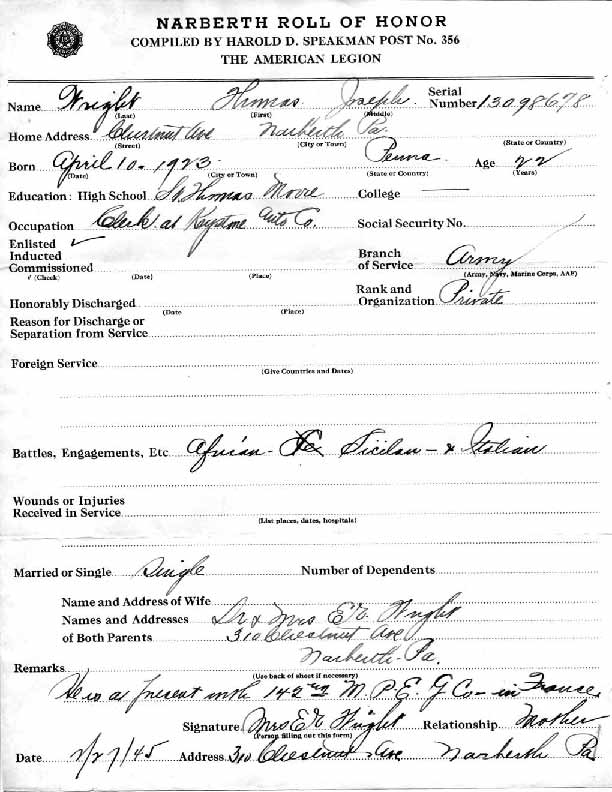 NARBERTH ROLL OF HONOR
COMPILED BY HAROLD D. SPEAKMAN POST No. 356
THE AMERICAN LEGION
Name Wright Thomas Joseph Serial Number 13098678
(Last) (First) (Middle)
Home Address Chestnut Ave Narberth Pa.
(Street) (City or Town) (State or Country)
Born April 10 - 1923 Penna Age 22
(Date) (City or Town) (State or Country) (Years)
Education: High School St Thomas Moore College
Occupation Clerk at Keystone Auto Co. Social Security No.
Enlisted ✓
Inducted
Commissioned
✓ (Check) (Date) (Place)
Branch of Service Army
(Army, Navy, Marine Corps, AAF)
Rank and Organization Private
Honorably Discharged
(Date (Place)
Reason for Discharge or
Separation from Service
Foreign Service
(Give Countries and Dates)
Battles, Engagements, Etc. African - Sicilan - & Italian
Wounds or Injuries
Received in Service
(List places, dates, hospitals)
Married or Single Single Number of Dependents
Name and Address of Wife
Names and Addresses Dr & Mrs E Wright
of Both Parents 310 Chestnut Ave
Narberth - Pa.
Remarks
(Use back of sheet if necessary)
He is at present with 142nd M. P. E. G Co - in France
Signature Mrs E Wright Relationship Mother
(Person filling out this form)
Date 2/27/45 Address 310 Chestnut Ave Narberth Pa